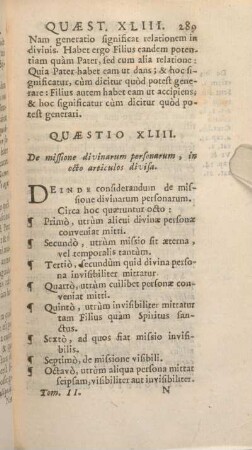 QUÆST. XLIII. 289
Nam generatio significat relationem in
divinis. Habet ergo Filius eandem poten-
tiam quàm Pater, sed cum alia relatione:
Quia Pater habet eam ut dans; & hoc si-
gnificatur, cùm dicitur quòd potest gene-
rare: Filius autem habet eam ut accipiens;
& hoc significatur cùm dicitur quòd po-
test generari.
QUÆSTIO XLIII.
De missione divinarum personarum, in
octo articulos divisa.
DEINDE considerandum de mis-
sione divinarum personarum.
Circa hoc quæruntur octo:
¶ Primò, utrùm alicui divinæ personæ
conveniat mitti.
¶ Secundò, utrùm missio sit æterna,
vel temporalis tantùm.
¶ Tertiò, secundùm quid divina perso-
na invisibiliter mittatur.
¶ Quartò, utrùm cuilibet personæ con-
veniat mitti.
¶ Quintò, utrùm invisibiliter mittatur
tam Filius quàm Spiritus san-
ctus.
¶ Sextò, ad quos fiat missio invisi-
bilis.
¶ Septimò, de missione visibili.
¶ Octavò, utrùm aliqua persona mittat
seipsam, visibiliter aut invisibiliter.
Tom. II. N